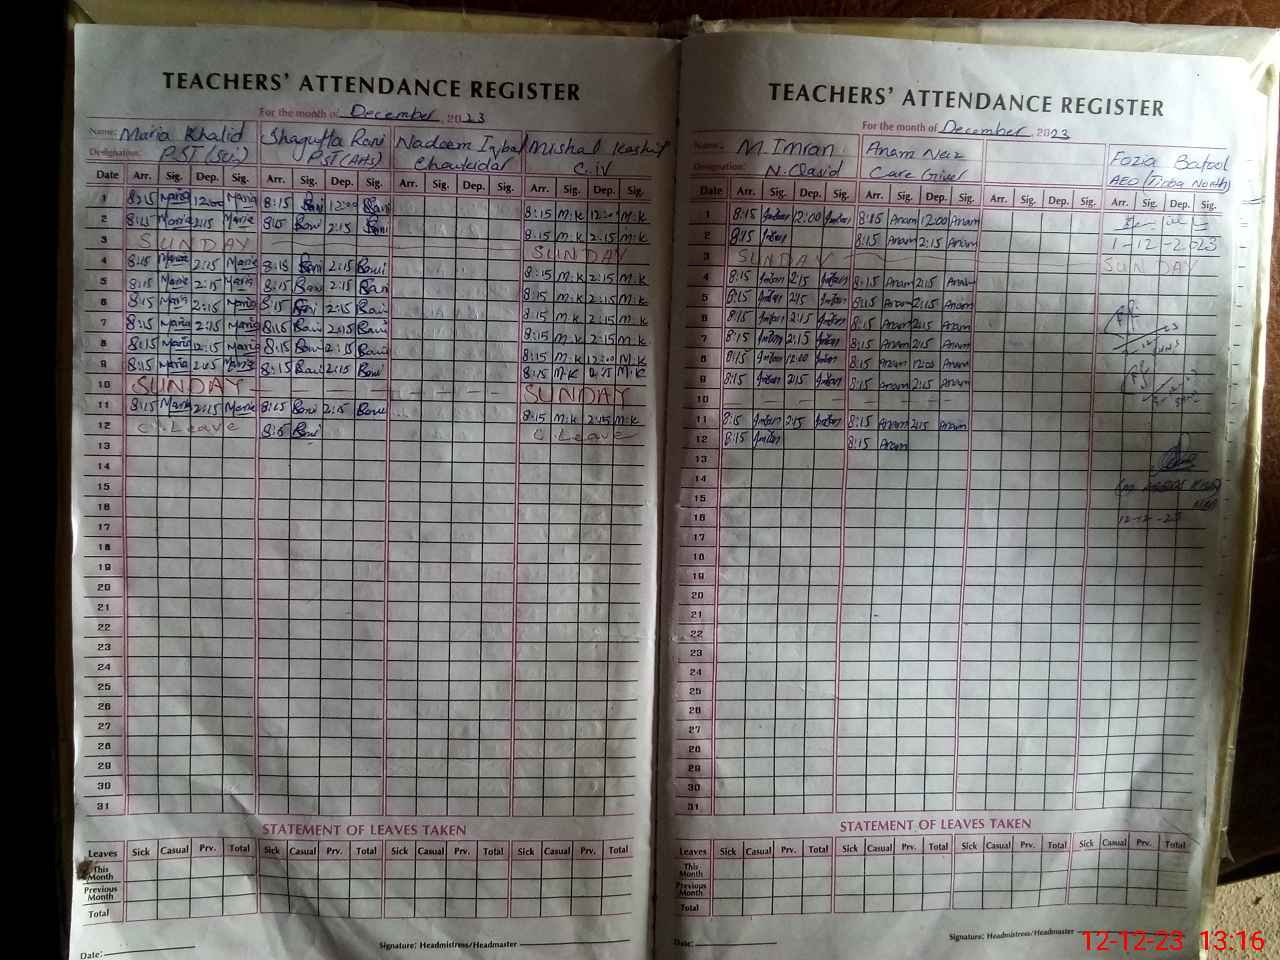 TEACHERS' ATTENDANCE REGISTER
For the month of December, 2023
Name: Maria Khalid Shagufta Rani Nadeem Iqbal Mishal Kashif
Designation: PST (Sci) PST (Arts) Chaukidar C.iv
Date Arr. Sig. Dep. Sig. Arr. Sig. Dep. Sig. Arr. Sig. Dep. Sig. Arr. Sig. Dep. Sig.
1 8:15 Maria 12:00 Maria 8:15 Rani 12:00 Rani 8:15 M.K 12:00 M.K
2 8:15 Maria 2:15 Maria 8:15 Rani 2:15 Rani 8:15 M.K 2:15 M.K
3 SUNDAY SUNDAY
4 8:15 Maria 2:15 Maria 8:15 Rani 2:15 Rani 8:15 M.K 2:15 M.K
5 8:15 Maria 2:15 Maria 8:15 Rani 2:15 Rani 8:15 M.K 2:15 M.K
6 8:15 Maria 2:15 Maria 8:15 Rani 2:15 Rani 8:15 M.K 2:15 M.K
7 8:15 Maria 2:15 Maria 8:15 Rani 2:15 Rani 8:15 M.K 2:15 M.K
8 8:15 Maria 12:15 Maria 8:15 Rani 2:15 Rani 8:15 M.K 12:00 M.K
9 8:15 Maria 2:15 Maria 8:15 Rani 2:15 Rani 8:15 M.K 2:15 M.K
10 SUNDAY SUNDAY
11 8:15 Maria 2:15 Maria 8:15 Rani 2:15 Rani 8:15 M.K 2:15 M.K
12 C.Leave 8:15 Rani C.Leave
13
14
15
16
17
18
19
20
21
22
23
24
25
26
27
28
29
30
31
STATEMENT OF LEAVES TAKEN
Leaves Sick Casual Prv. Total Sick Casual Prv. Total Sick Casual Prv. Total Sick Casual Prv. Total
This Month
Previous Month
Total
Date: Signature: Headmistress/Headmaster
TEACHERS' ATTENDANCE REGISTER
For the month of December, 2023
Name: M.Imran Anam Naiz Fozia Batool
Designation: N.Qasid Care Giver AEO (Tibba North)
Date Arr. Sig. Dep. Sig. Arr. Sig. Dep. Sig. Arr. Sig. Dep. Sig. Arr. Sig. Dep. Sig.
1 8:15 Imran 12:00 Imran 8:15 Anam 12:00 Anam
2 8:15 Imran 8:15 Anam 2:15 Anam 1-12-2023
3 SUNDAY SUNDAY
4 8:15 Imran 2:15 Imran 8:15 Anam 2:15 Anam
5 8:15 Imran 2:15 Imran 8:15 Anam 2:15 Anam
6 8:15 Imran 2:15 Imran 8:15 Anam 2:15 Anam
7 8:15 Imran 2:15 Imran 8:15 Anam 2:15 Anam
8 8:15 Imran 12:00 Imran 8:15 Anam 12:00 Anam
9 8:15 Imran 2:15 Imran 8:15 Anam 2:15 Anam
10
11 8:15 Imran 2:15 Imran 8:15 Anam 2:15 Anam
12 8:15 Imran 8:15 Anam
13
14
15
16 12-12-23
17
18
19
20
21
22
23
24
25
26
27
28
29
30
31
STATEMENT OF LEAVES TAKEN
Leaves Sick Casual Prv. Total Sick Casual Prv. Total Sick Casual Prv. Total Sick Casual Prv. Total
This Month
Previous Month
Total
Date: Signature: Headmistress/Headmaster
12-12-23 13:16